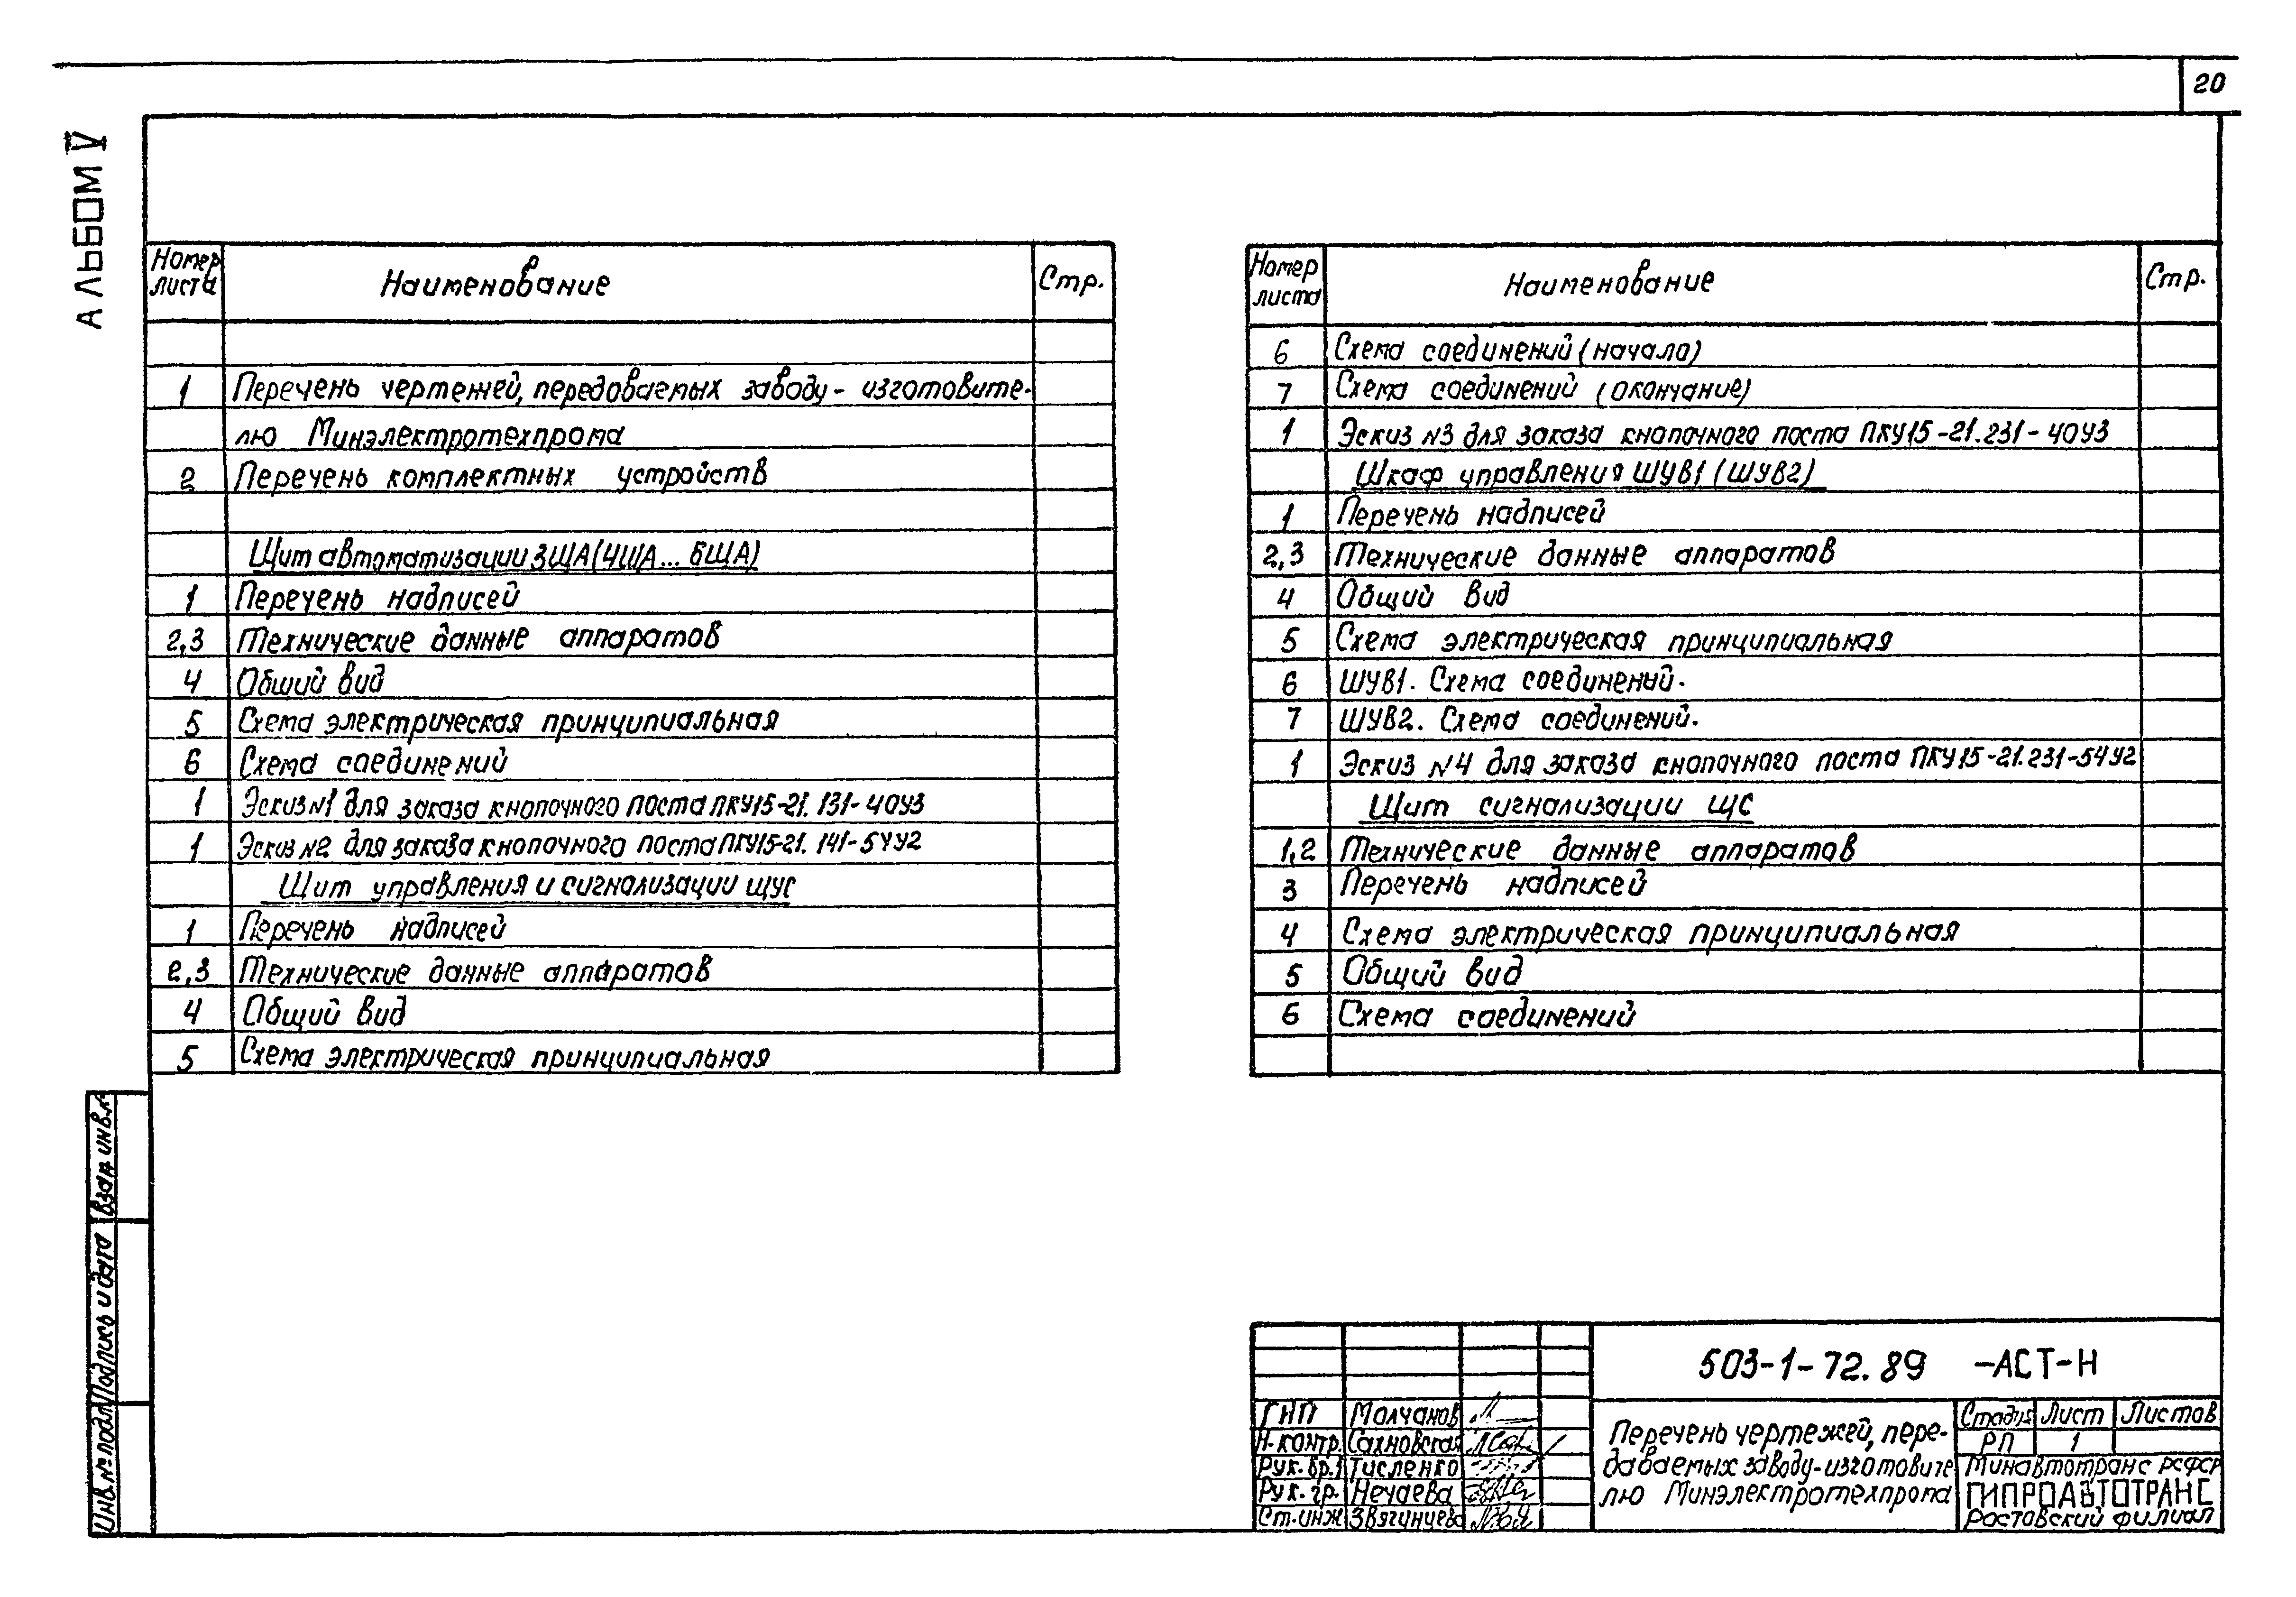 20
АЛЬБОМ V
Номер листа Наименование Стр.
1 Перечень чертежей, передаваемых заводу - изготовите-
лю Минэлектротехпрома
2 Перечень комплектных устройств
Щит автоматизации 3ЩА (4ЩА... 6ЩА)
1 Перечень надписей
2,3 Технические данные аппаратов
4 Общий вид
5 Схема электрическая принципиальная
6 Схема соединений
1 Эскиз №1 для заказа кнопочного поста ПКУ15-21.131-40У3
1 Эскиз №2 для заказа кнопочного поста ПКУ15-21.141-54У2
Щит управления и сигнализации ЩУС
1 Перечень надписей
2,3 Технические данные аппаратов
4 Общий вид
5 Схема электрическая принципиальная
Номер листа Наименование Стр.
6 Схема соединений (начало)
7 Схема соединений (окончание)
1 Эскиз №3 для заказа кнопочного поста ПКУ15-21.231-40У3
Шкаф управления ШУВ1 (ШУВ2)
1 Перечень надписей
2,3 Технические данные аппаратов
4 Общий вид
5 Схема электрическая принципиальная
6 ШУВ1. Схема соединений.
7 ШУВ2. Схема соединений.
1 Эскиз №4 для заказа кнопочного поста ПКУ15-21.231-54У2
Щит сигнализации ЩС
1,2 Технические данные аппаратов
3 Перечень надписей
4 Схема электрическая принципиальная
5 Общий вид
6 Схема соединений
Инв.№ подл. Подпись и дата Взам инв.№
503-1-72.89 -АСТ-Н
ГИП Молчанов
Н.контр. Сахновская
Рук.бр.1 Тисленко
Рук.гр. Нечаева
Ст.инж Звягинцева
Перечень чертежей, пере-
даваемых заводу-изготовите
лю Минэлектротехпрома
Стадия Лист Листов
РП 1
Минавтотранс РСФСР
ГИПРОАВТОТРАНС
Ростовский филиал